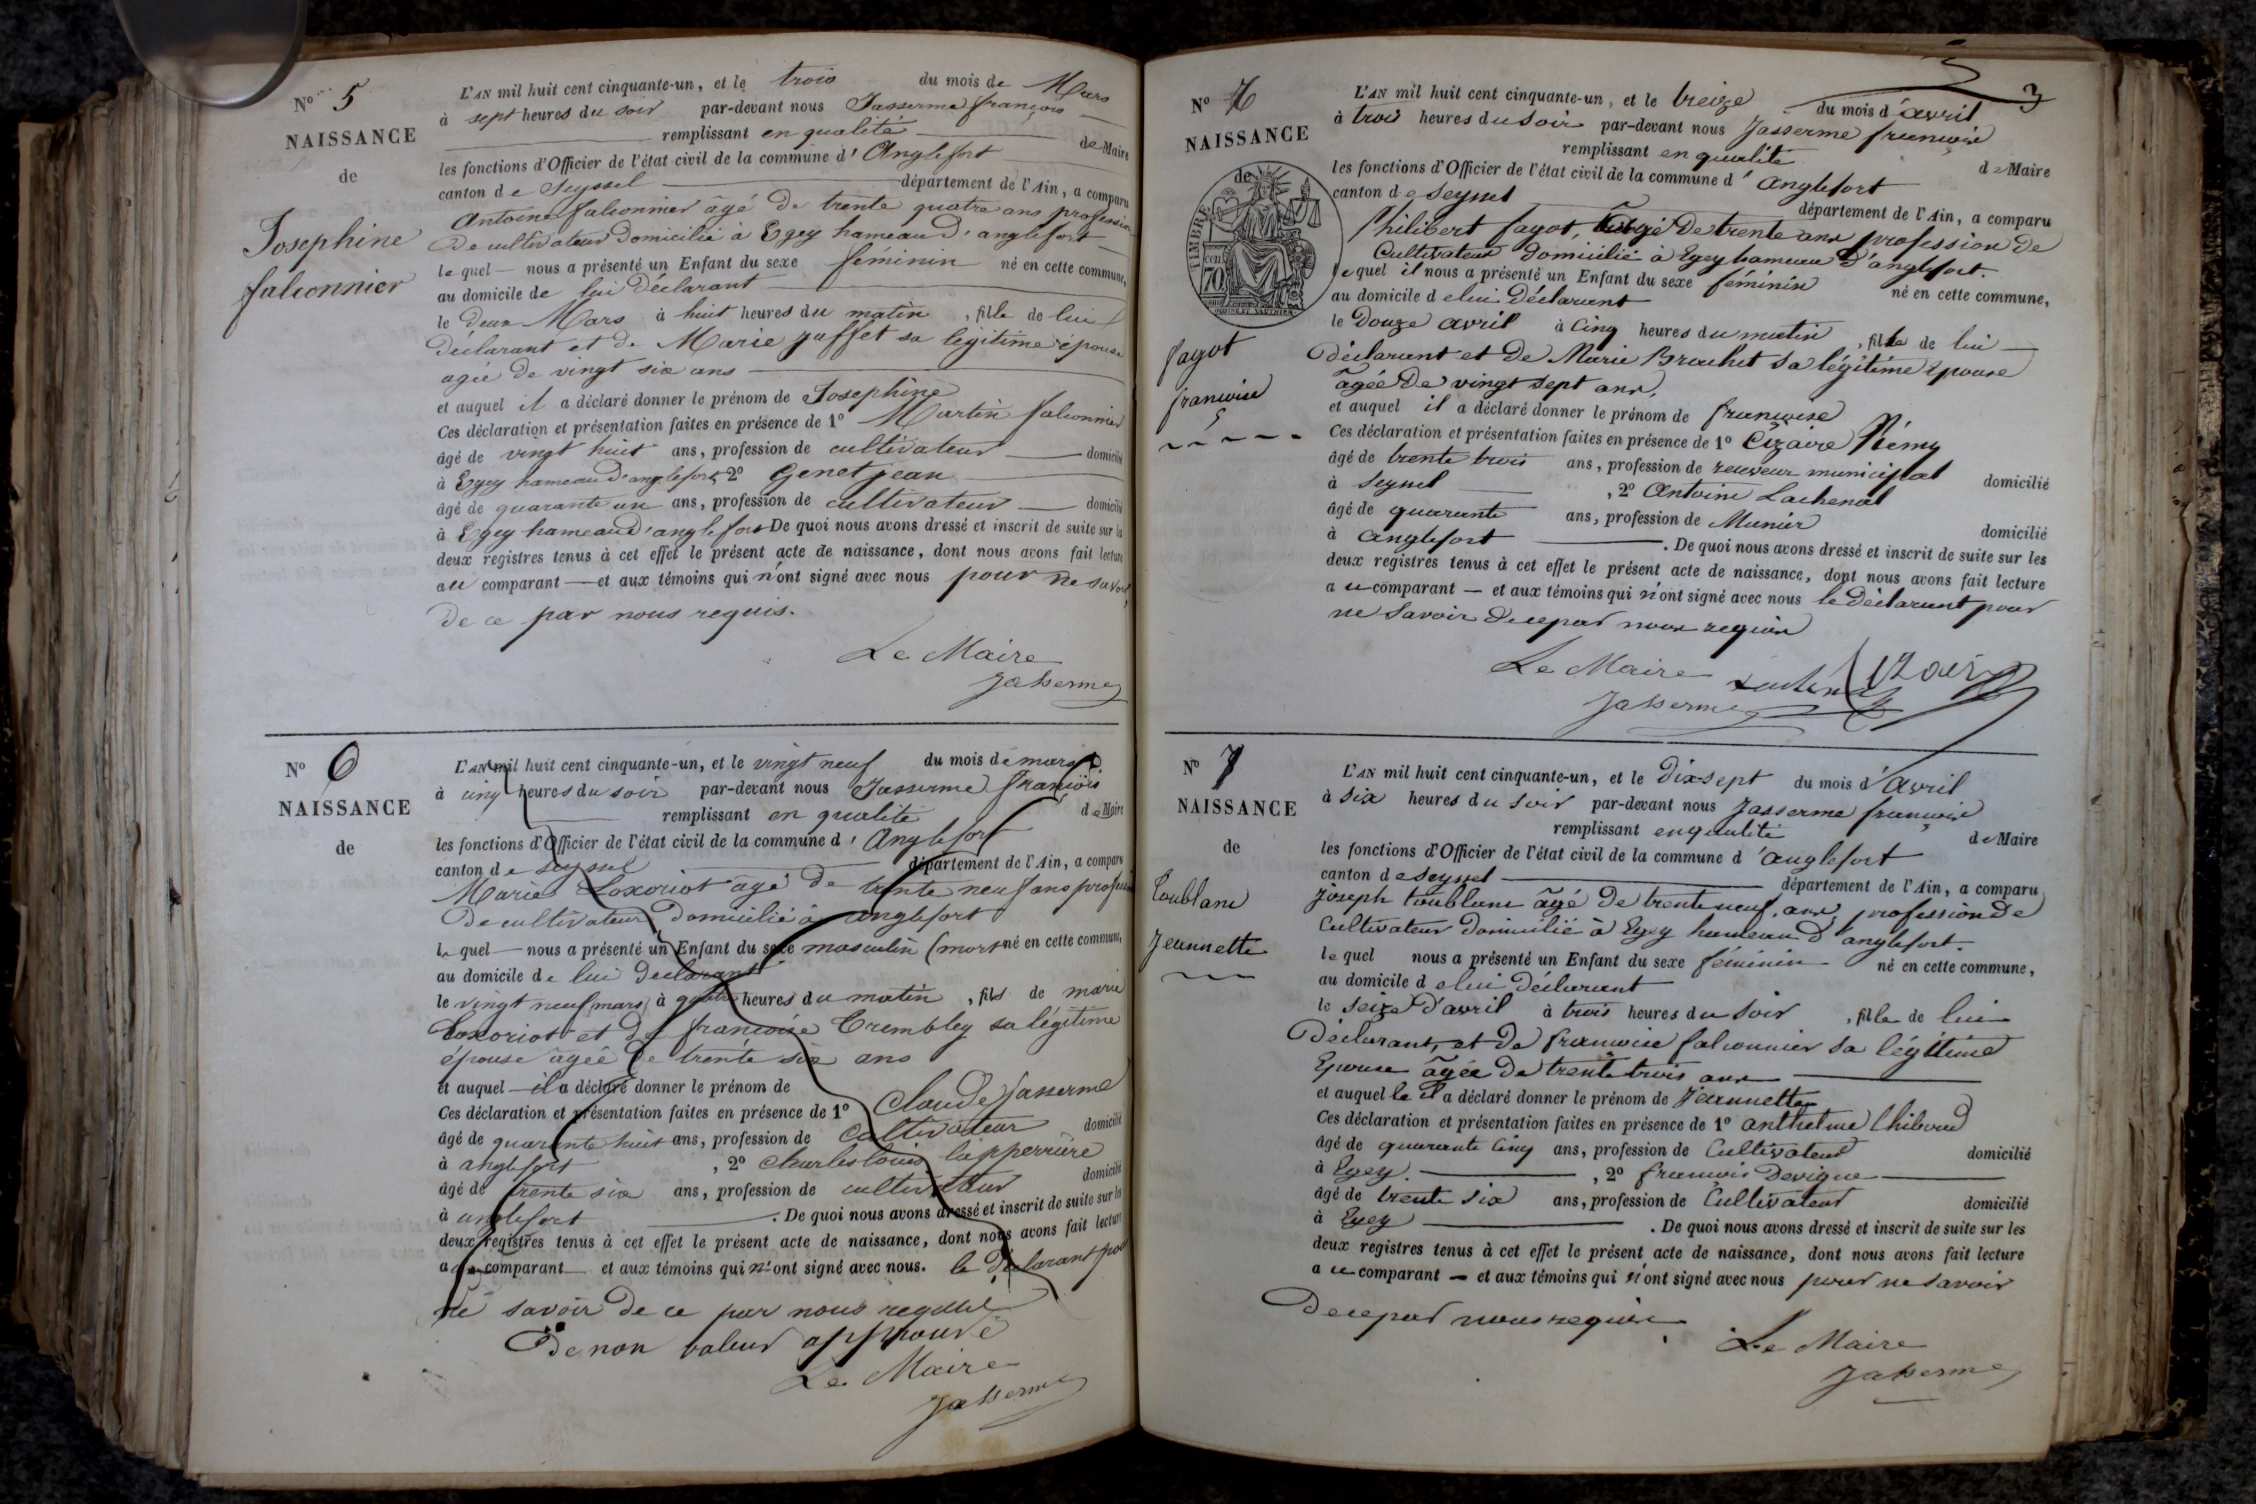 N° 5
NAISSANCE
de
Josephine
falconnier
L'AN mil huit cent cinquante-un, et le trois du mois de Mars
à sept heures du soir par-devant nous Jasserme françois
remplissant en qualité de Maire
les fonctions d'Officier de l'état civil de la commune d'Anglefort
canton de Seyssel département de l'Ain, a comparu
Antoine falconnier âgé de trente quatre ans profession
de cultivateur domicilié à Egey hameau d'anglefort
lequel nous a présenté un Enfant du sexe féminin né en cette commune,
au domicile de lui déclarant
le deux Mars à huit heures du matin, fille de lui
déclarant et de Marie juffet sa légitime épouse
agée de vingt six ans
et auquel il a déclaré donner le prénom de Josephine
Ces déclaration et présentation faites en présence de 1° Martin falconnier
âgé de vingt huit ans, profession de cultivateur domicilié
à Egey hameau d'anglefort, 2° Genet jean
âgé de quarante un ans, profession de cultivateur domicilié
à Egey hameau d'anglefort De quoi nous avons dressé et inscrit de suite sur les
deux registres tenus à cet effet le présent acte de naissance, dont nous avons fait lecture
au comparant et aux témoins qui n'ont signé avec nous pour ne savoir
de ce par nous requis.
Le Maire
Jasserme
N° 6
NAISSANCE
de
L'AN mil huit cent cinquante-un, et le vingt neuf du mois de mars
à cinq heures du soir par-devant nous Jasserme françois
remplissant en qualité de Maire
les fonctions d'Officier de l'état civil de la commune d'Anglefort
canton de seyssel département de l'Ain, a comparu
Marie Loxoriot âgé de trente neuf ans profession
de cultivateur domicilié à anglefort
lequel nous a présenté un Enfant du sexe masculin (mort né en cette commune,
au domicile de lui declarant
le vingt neuf mars à quatre heures du matin, fils de marie
Loxoriot et de françoise Trembley sa légitime
épouse agée de trente six ans
et auquel il a déclaré donner le prénom de
Ces déclaration et présentation faites en présence de 1° Claude Jasserme
âgé de quarante huit ans, profession de Cultivateur domicilié
à anglefort, 2° Charles louis lapperrière
âgé de trente six ans, profession de cultivateur domicilié
à anglefort. De quoi nous avons dressé et inscrit de suite sur les
deux registres tenus à cet effet le présent acte de naissance, dont nous avons fait lecture
au comparant et aux témoins qui n'ont signé avec nous. le déclarant pour
ne savoir de ce par nous requis
De non valeur approuvé
Le Maire
Jasserme
3
N° 7
NAISSANCE
de
TIMBRE
70
fayot
françoise
L'AN mil huit cent cinquante-un, et le treize du mois d'avril
à trois heures du soir par-devant nous Jasserme françois
remplissant en qualité de Maire
les fonctions d'Officier de l'état civil de la commune d'anglefort
canton de seyssel département de l'Ain, a comparu
Philibert fayot, âgé de trente ans profession de
Cultivateur domicilié à Egey hameau d'anglefort.
lequel il nous a présenté un Enfant du sexe féminin né en cette commune,
au domicile de lui déclarant
le douze avril à cinq heures du matin, fille de lui
déclarant et de Marie Brachet sa légitime épouse
âgée de vingt sept ans,
et auquel il a déclaré donner le prénom de françoise
Ces déclaration et présentation faites en présence de 1° Cizaire Rémy
âgé de trente trois ans, profession de receveur municipal domicilié
à seyssel, 2° Antoine Lachenal
âgé de quarante ans, profession de Munier domicilié
à anglefort. De quoi nous avons dressé et inscrit de suite sur les
deux registres tenus à cet effet le présent acte de naissance, dont nous avons fait lecture
au comparant et aux témoins qui n'ont signé avec nous le déclarant pour
ne savoir de ce par nous requis
Le Maire Lachenal Cizaire
Jasserme
N° 7
NAISSANCE
de
Toublanc
Jeannette
L'AN mil huit cent cinquante-un, et le dix-sept du mois d'avril
à six heures du soir par-devant nous Jasserme françois
remplissant en qualité de Maire
les fonctions d'Officier de l'état civil de la commune d'anglefort
canton de seyssel département de l'Ain, a comparu
joseph toublanc âgé de trente neuf ans, profession de
Cultivateur domicilié à Egey hameau d'anglefort.
lequel nous a présenté un Enfant du sexe féminin né en cette commune,
au domicile de lui déclarant
le seize d'avril à trois heures du soir, fille de lui
Déclarant, et de françoise falconnier sa légitime
Epouse âgée de trente trois ans
et auquel le il a déclaré donner le prénom de Jeannette
Ces déclaration et présentation faites en présence de 1° anthelme Thiboud
âgé de quarante cinq ans, profession de Cultivateur domicilié
à Egey., 2° françois Devigne
âgé de trente six ans, profession de Cultivateur domicilié
à Egey. De quoi nous avons dressé et inscrit de suite sur les
deux registres tenus à cet effet le présent acte de naissance, dont nous avons fait lecture
au comparant et aux témoins qui n'ont signé avec nous pour ne savoir
de ce par nous requis.
Le Maire
Jasserme